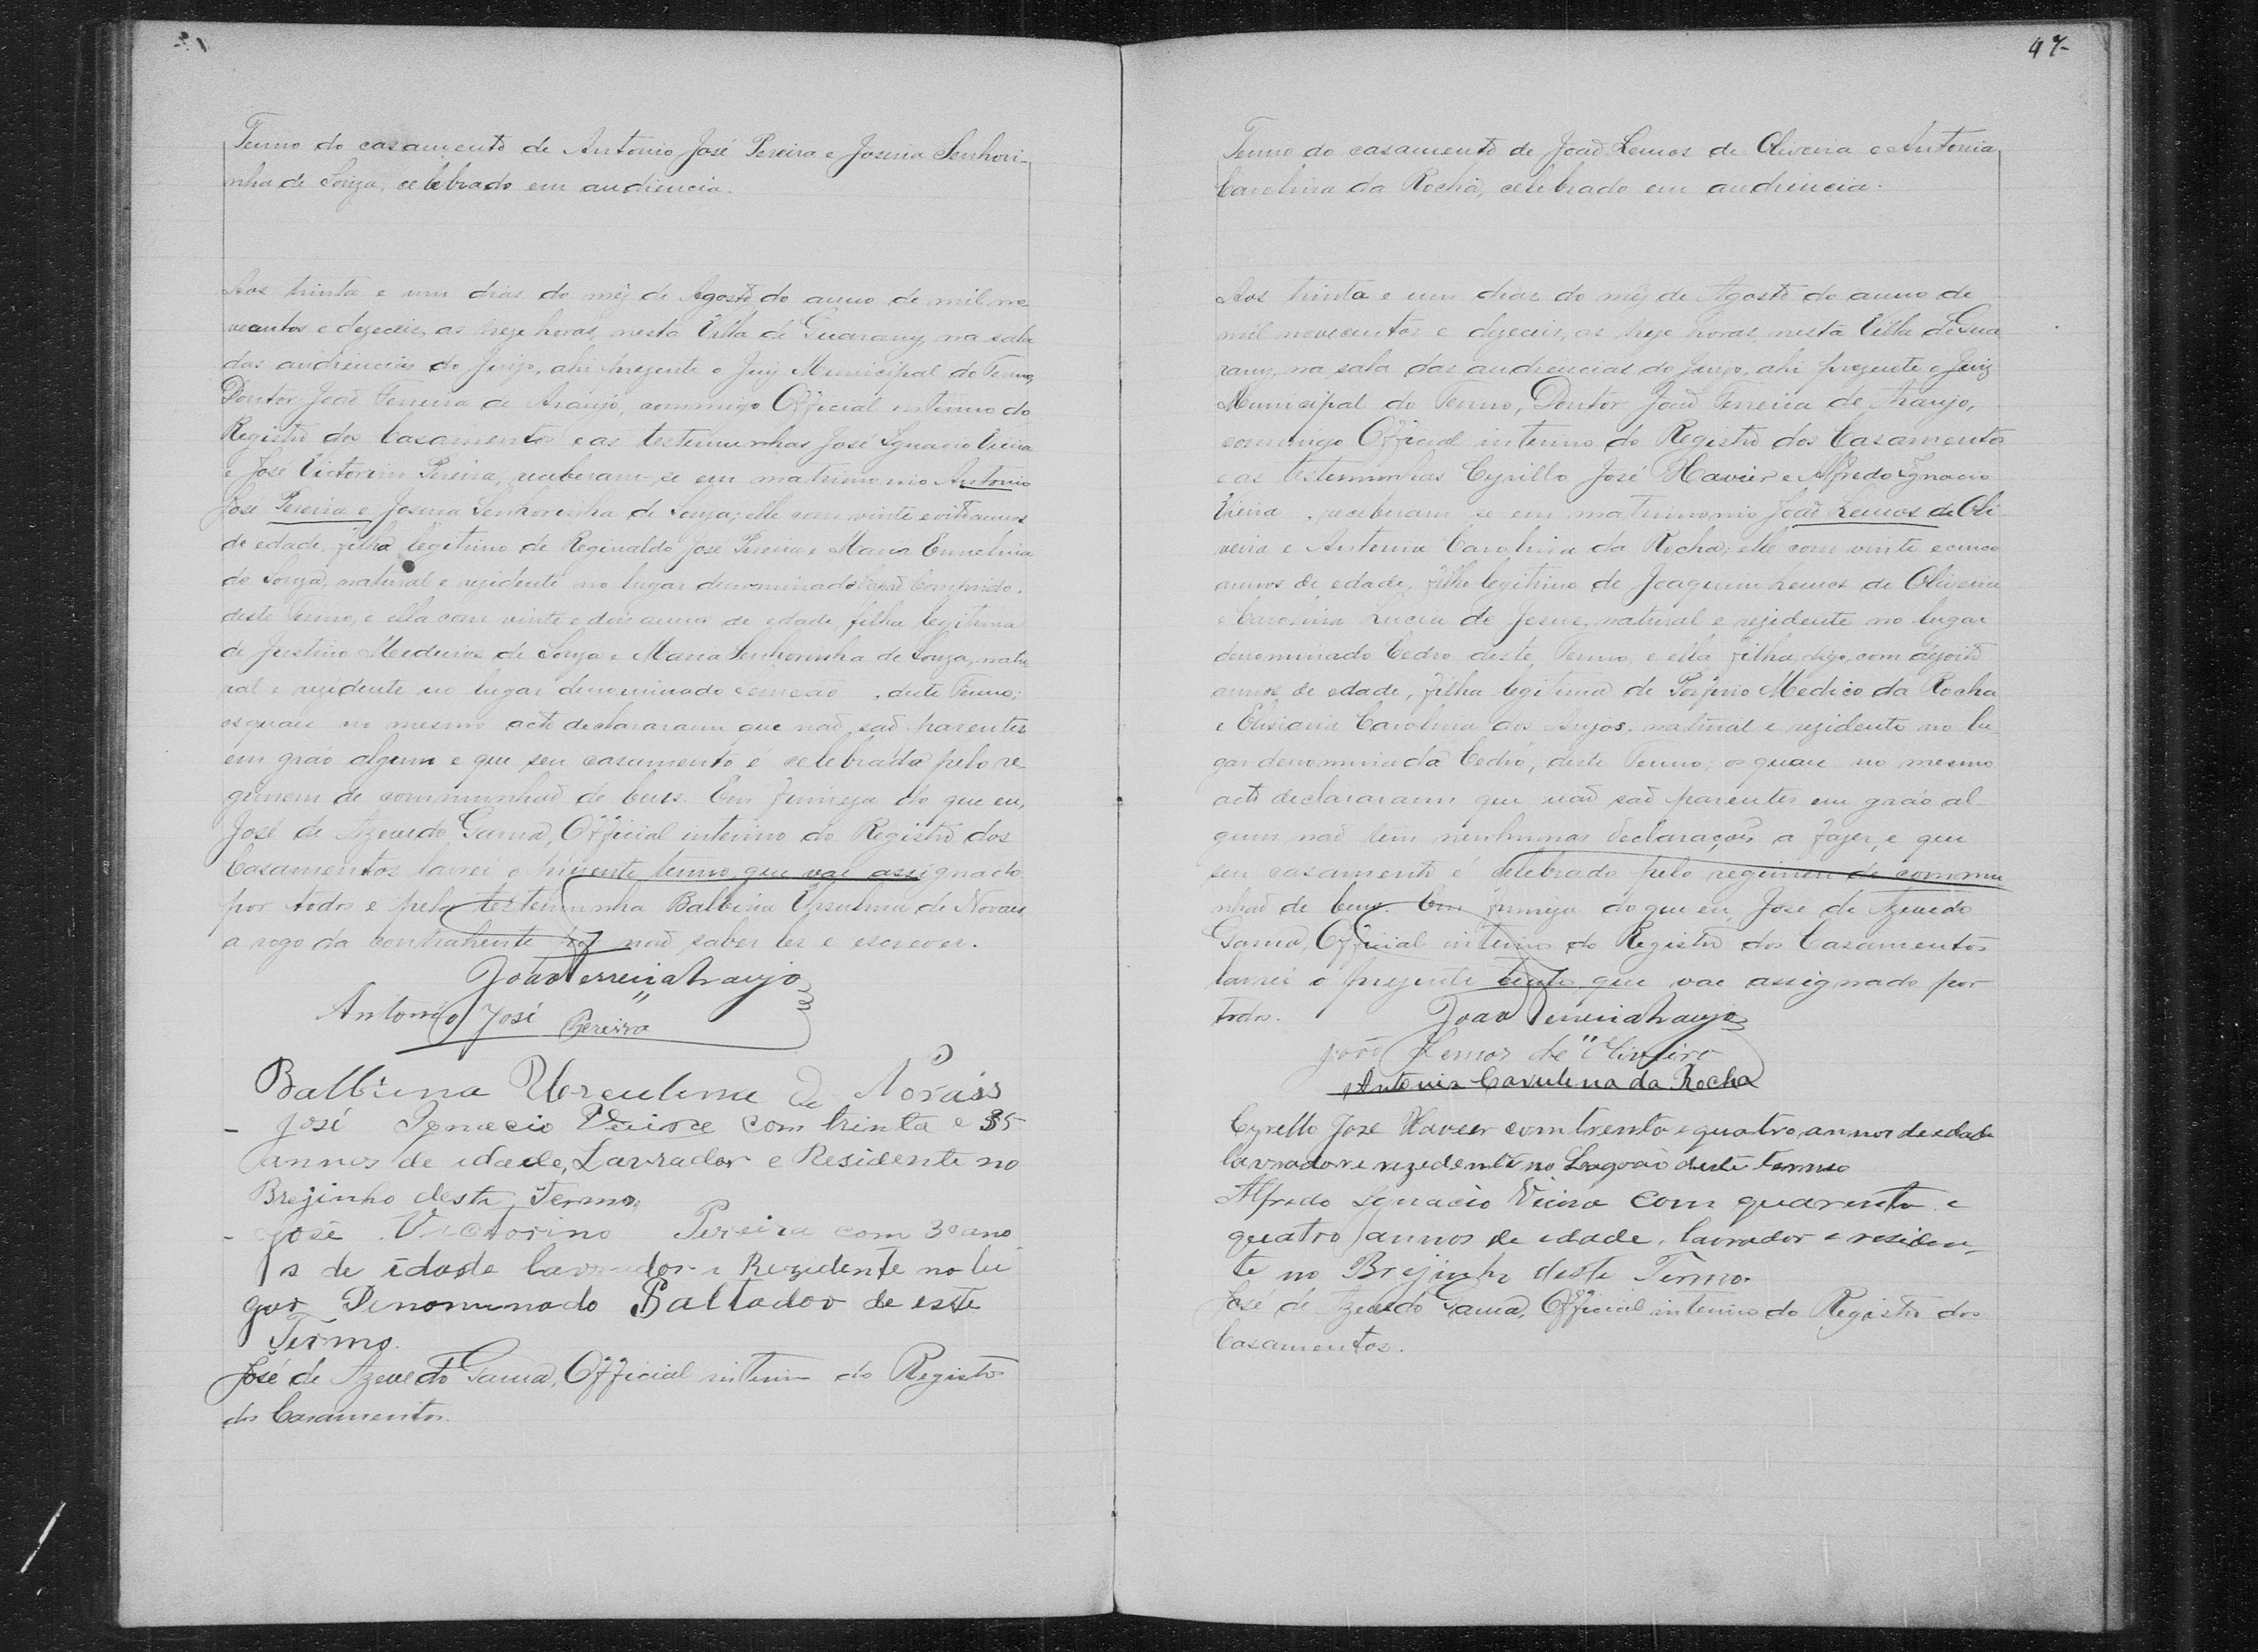 Termo do casamento de Antonio José Pereira e Josina Senhori-
nha de Souza, celebrado em audiencia.
Aos trinta e um dias do mêz de Agosto do anno de mil no-
vecentos e dezeceis, as treze horas, nesta Villa de Guarany, na sala
das audiencias do Juizo, ahi prezente o Juiz Municipal do Termo,
Doutor João Ferreira de Araujo, commigo Official interino do
Registro dos Casamentos e as testemunhas José Ignacio Vieira
e José Victorino Pereira, receberam-se em matrimonio Antonio
José Pereira e Josina Senhorinha de Souza; elle com vinte e oito annos
de edade, filho legitimo de Reginaldo José Pereira e Maria Ermelina
de Souza, natural e rezidente no lugar denominado Comprido,
deste Termo, e ella com vinte e dois annos de edade, filha legitima
de Justino Medeiros de Souza e Maria Senhorinha de Souza, natu
ral e rezidente no lugar denominado, deste Termo;
os quaes no mesmo acto declararam que não são parentes
em gráo algum e que seu casamento é celebrado pelo re
gimem de communhão de bens. Em firmeza do que eu,
José de Azevedo Gama, Official interino do Registro dos
Casamentos lavrei o prezente termo que vai assignado
por todos e pela testemunha Balbina Ursulina de Novaes
a rogo da contrahente por não saber ler e escrever.
João Ferreira Araujo
Antonio José Pereira
Balbina Urculina de Novais
- José Ignacio Vieira com trinta e 35
annos de idade, Lavrador e Residente no
Brejinho deste Termo,
- José Victorino Pereira com 30 ano
s de idade lavrador e Rezidente no lu
gar Denominado Saltador de este
Termo.
José de Azevedo Gama, Official interino do Registro
dos Casamentos.
47
Termo do casamento de João Lemos de Oliveira e Antonia
Carolina da Rocha, celebrado em audiencia.
Aos trinta e um dias do mêz de Agosto do anno de
mil novecentos e dezeceis, as treze horas, nesta Villa de Gua
rany, na sala das audiencias do Juizo, ahi prezente o Juiz
Municipal do Termo, Doutor João Ferreira de Araujo,
commigo Official interino do Registro dos Casamentos
e as testemunhas Cyrillo José Xavier e Alfredo Ignacio
Vieira, receberam se em matrimonio João Lemos de Oli
veira e Antonia Carolina da Rocha; elle com vinte e cinco
annos de edade, filho legitimo de Joaquim Lemos de Oliveira
e Carolina Lucia de Jesus, natural e rezidente no lugar
denominado Cedro deste Termo; e ella filha, digo, com dezoito
annos de edade, filha legitima de Porfirio Medico da Rocha
e Carolina dos Anjos, natural e rezidente no lu
gar denominada Cedro, deste Termo; os quaes no mesmo
acto declararam que não são parentes em gráo al-
gum, não tem nenhumas declarações a fazer, e que
seu casamento é celebrado pelo regimen de commu
nhão de bens. Em firmeza do que eu, José de Azevedo
Gama, Official interino do Registro dos Casamentos
lavrei o prezente termo que vae assignado por
todos. João Ferreira Araujo
João Lemos de Oliveira
Antonia Carulina da Rocha
Cyrello José Xavier com trenta e quatro annos de edade
lavrador e rezedente no Lagoão deste termo
Alfredo Ignacio Vieira com quarenta e
quatro annos de idade, lavrador e residen-
te no Brejinho deste Termo.
José de Azevedo Gama, Official interino do Registro dos
Casamentos.